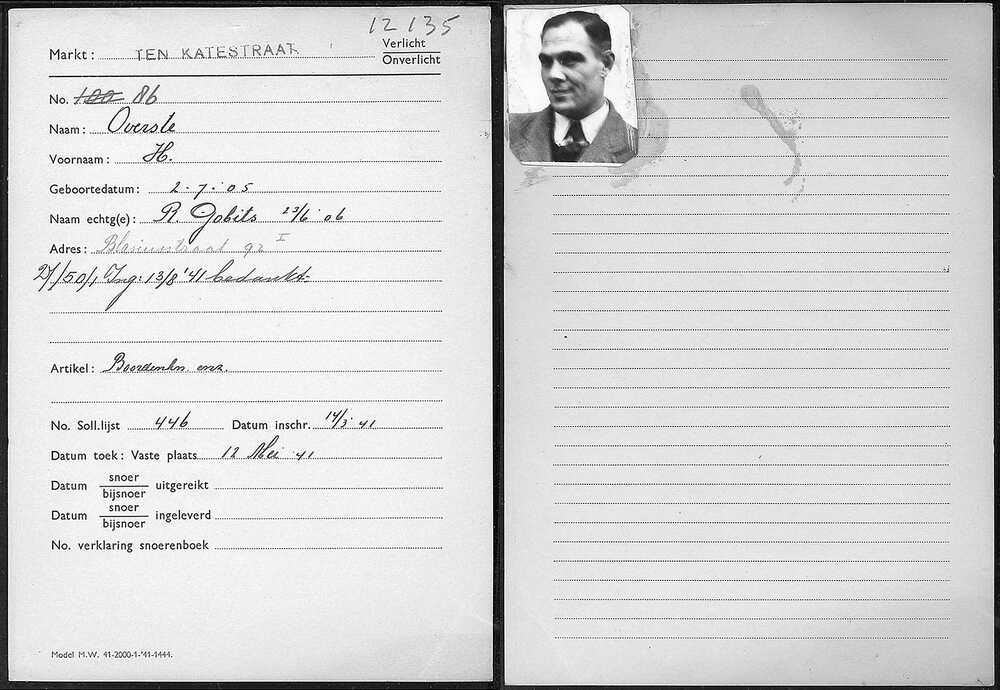 12 135
Markt: TEN KATESTRAAT
Verlicht
Onverlicht
No. 100 86
Naam: Overste
Voornaam: H.
Geboortedatum: 2-7-05
Naam echtg(e): R. Gobits 23/6 06
Adres: Blasiusstraat 92 I
27/50/1 Ing: 13/8 '41 bedankt.
Artikel: enz.
No. Soll.lijst 446 Datum inschr. 14/3 41
Datum toek: Vaste plaats 12 Mei 41
Datum snoer uitgereikt
bijsnoer
Datum snoer ingeleverd
bijsnoer
No. verklaring snoerenboek
Model M.W. 41-2000-1-'41-1444.